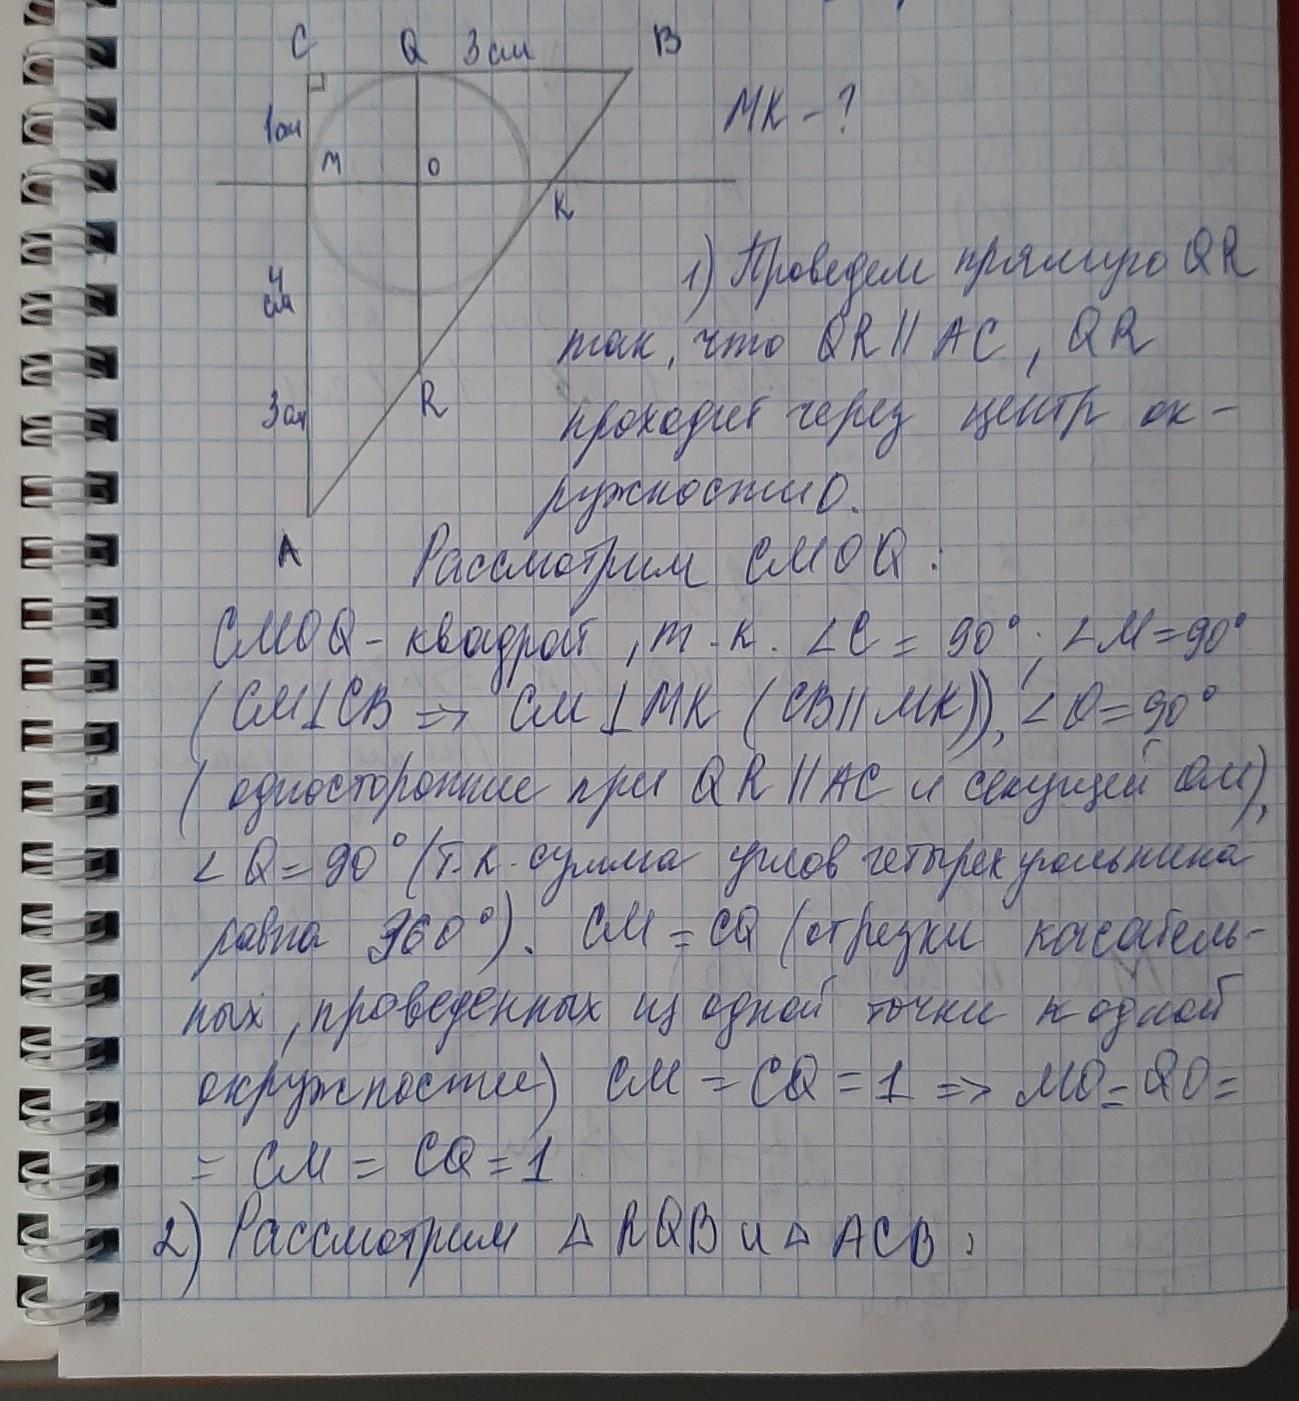 C Q 3 см B
1 см
MK - ?
M O
K
4 см
1) Проведем прямую QR
так, что QR || AC, QR
3 см R
проходит через центр ок-
ружности O.
A Рассмотрим CMOQ:
CMOQ - квадрат, т.к. ∠C = 90°, ∠M = 90°
(CM⊥CB => CM⊥MK (CB || MK)), ∠O = 90°
(односторонние при QR || AC и секущей OM),
∠Q = 90° (т.к. сумма углов четырехугольника
равна 360°). CM = CQ (отрезки касатель-
ных, проведенных из одной точки к одной
окружности) CM = CQ = 1 => MO = QO =
= CM = CQ = 1
2) Рассмотрим △ RQB и △ ACB: